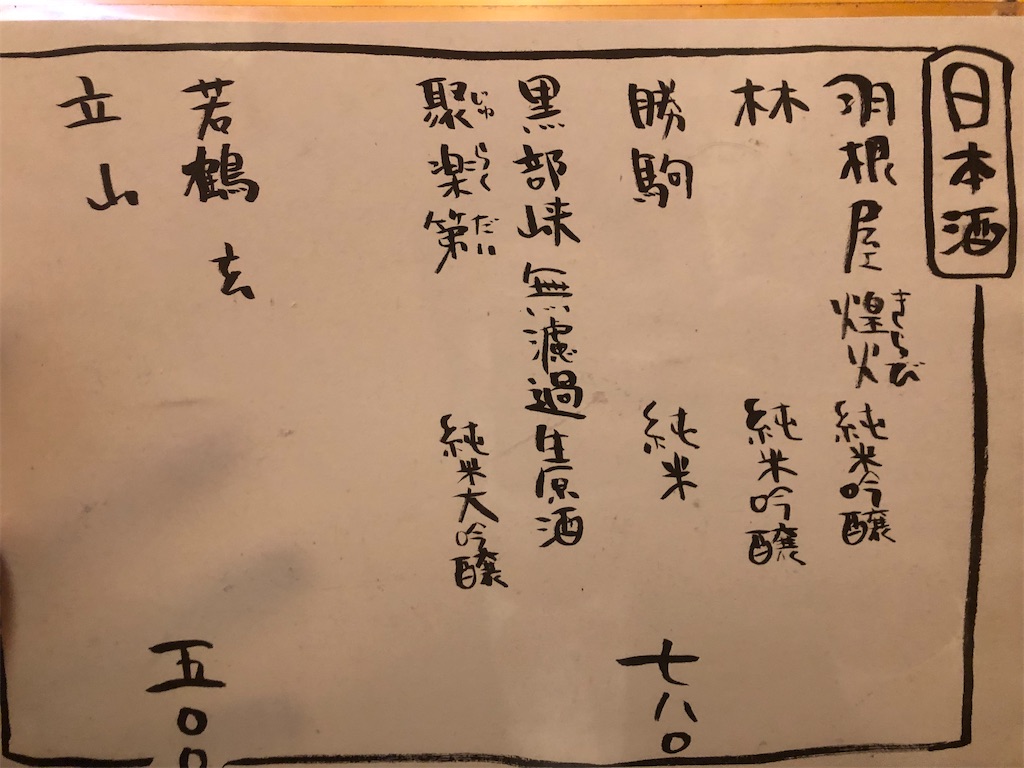 日本酒
羽根屋 煌火 純米吟醸
きらび
林 純米吟醸
勝駒 純米
七八〇
黒部峡 無濾過生原酒
聚楽第 純米大吟醸
じゅらくだい
若鶴 玄
五〇〇
立山